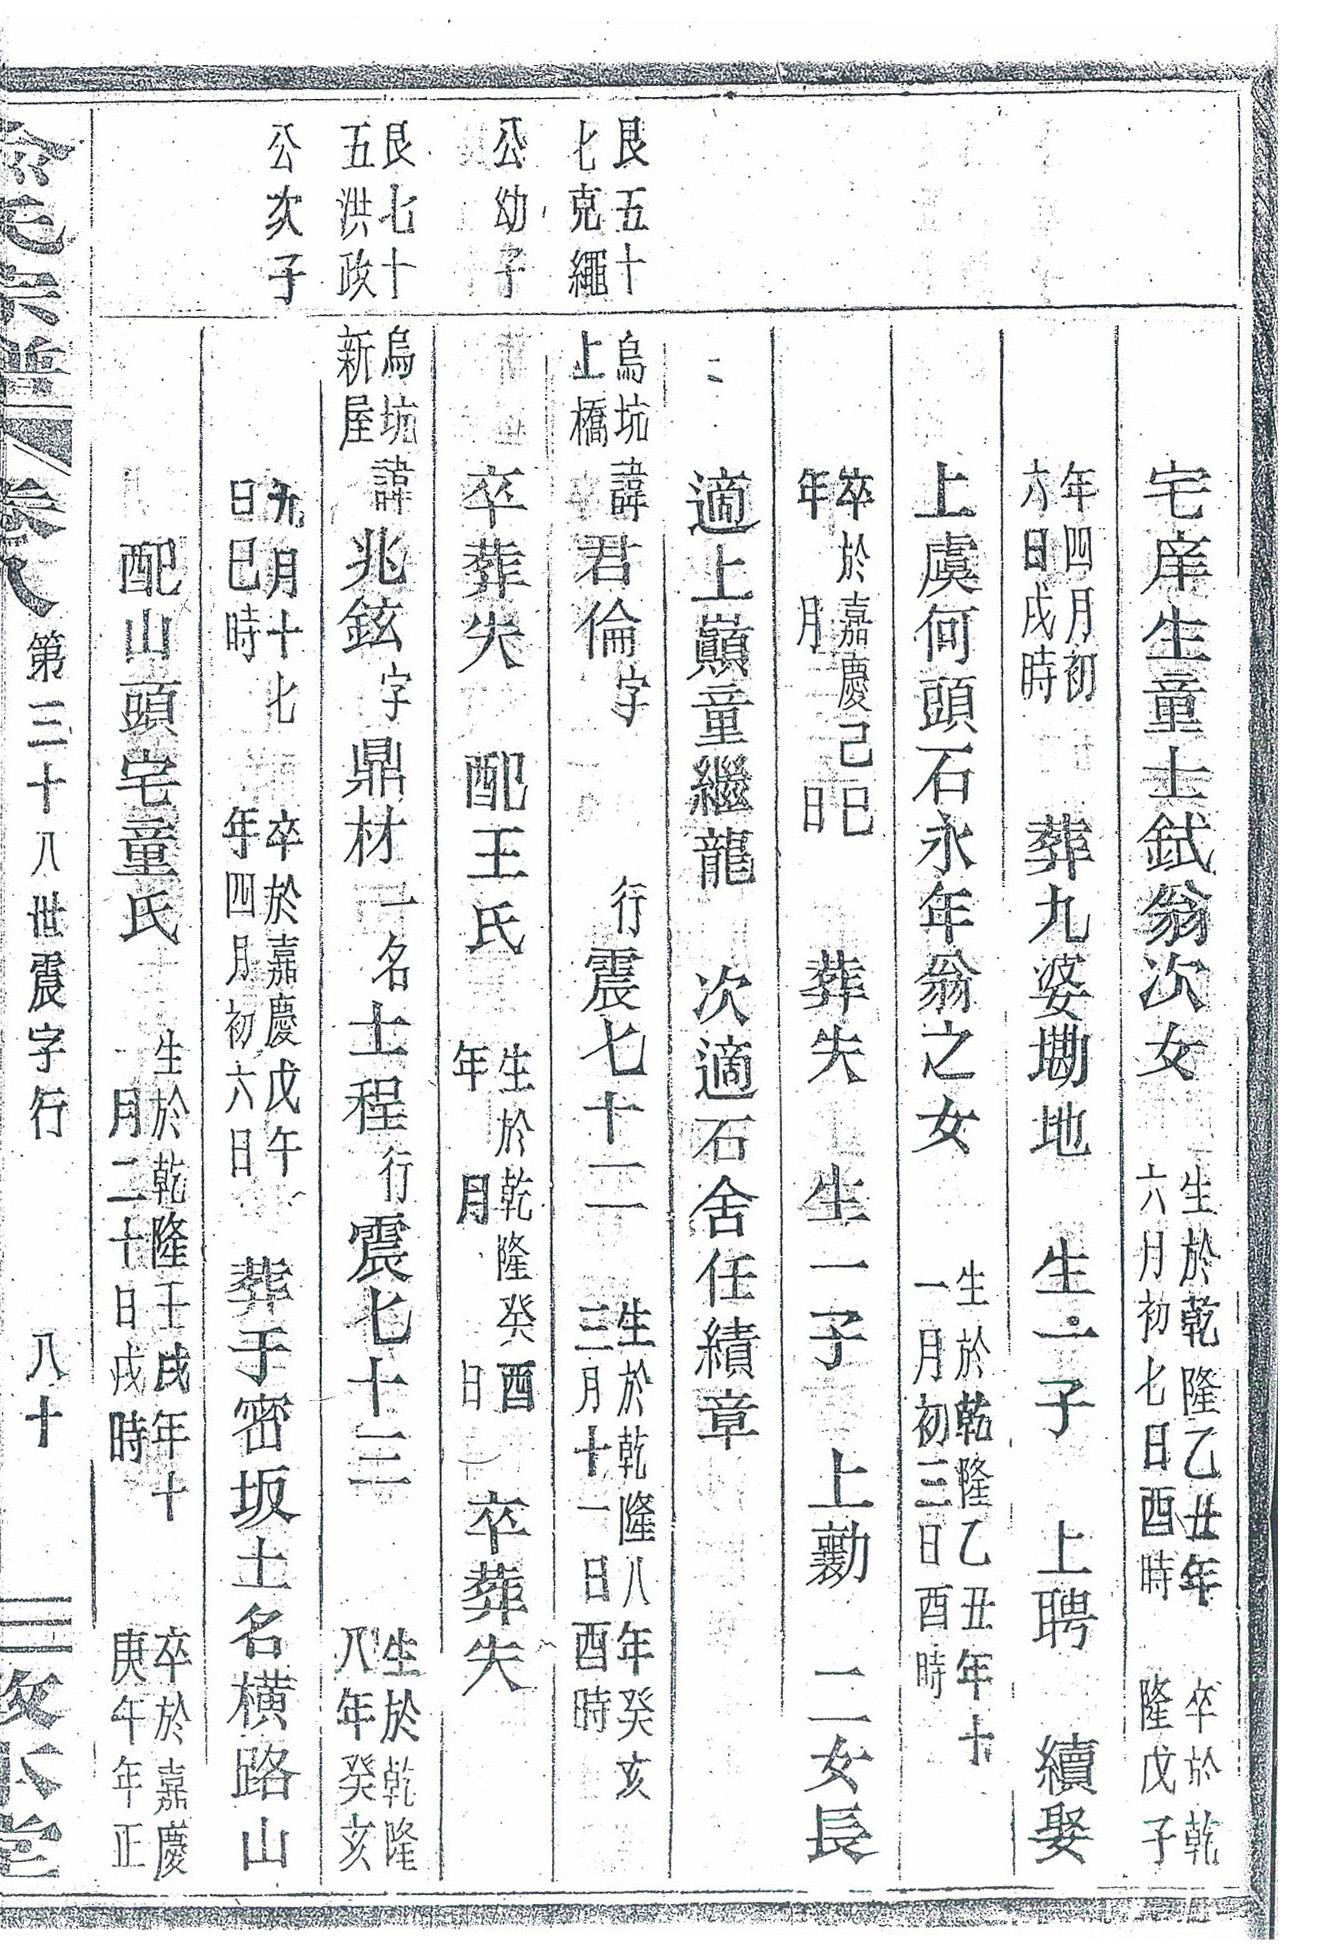 宅庠生童士鉽翁次女 生於乾隆乙丑年六月初七日酉時 卒於乾隆戊子
年四月初六日戌時 葬九婆墈地 生一子 上聘 續娶
上虞何頭石永年翁之女 生於乾隆乙丑年十一月初三日酉時
卒於嘉慶己巳年 月 日 葬失 生一子 上勷 二女長
適上巔童繼龍 次適石舍任績章
艮五十七克繩 烏坑上橋 諱君倫字 行震七十二 生於乾隆八年癸亥三月十一日酉時
公幼子 卒葬失 配王氏 生於乾隆癸酉年 月 日 卒葬失
艮七十五洪政 烏坑新屋 諱兆鉉字鼎材一名士程行震七十三 生於乾隆八年癸亥
公次子 九月十七日巳時 卒於嘉慶戊午年四月初六日 葬于密坂土名橫路山
配山頭宅童氏 生於乾隆壬戌年十月二十日戌時 卒於嘉慶庚午年正
氏宗譜 卷八 第三十八世震字行 八十